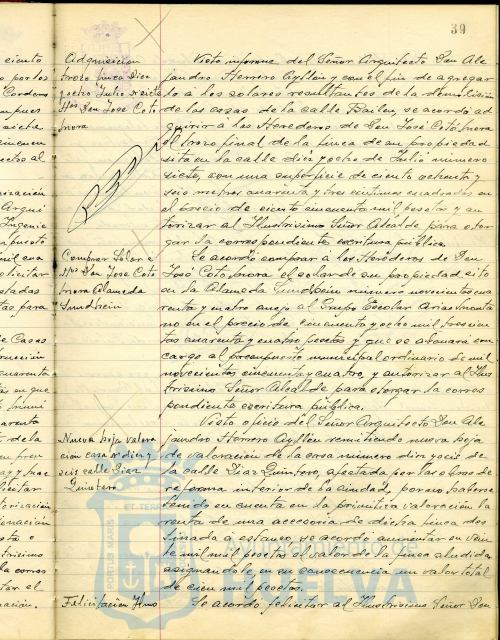 39
Adquisicion
trozo finca Diez
y ocho Julio siete
Hros Don José Coto
mora
Visto informe del Señor Arquitecto Don Ale
jandro Herrero Ayllon y con el fin de agregar
lo a los solares resultantes de la demolición
de las casas de la calle Bailen, se acordó ad
quirir a los Herederos de Don José Coto mora
el trozo final de la finca de su propiedad
sita en la calle diez y ocho de Julio numero
siete, con una superficie de ciento ochenta y
seis metros cuarenta y tres centimos cuadrados en
el precio de ciento cincuenta mil pesetas y au
torizar al Ilustrisimo Señor Alcalde para otor
gar la correspondiente escritura pública.
Comprar Solar a
Hros Don Jose Coto
mora Alameda
Sundheim
Se acordó comprar a los Herederos de Don
José Coto mora el solar de su propiedad sito
en la Alameda Sundheim numero novecientos cua
renta y cuatro anejo al Grupo Escolar Arias Monta
no en el precio de cincuenta y ocho mil trescien
tas cuarenta y cuatro pesetas y que se abonará con
cargo al presupuesto municipal ordinario de mil
novecientos cincuenta y cuatro, y autorizar al Ilus
trisimo Señor Alcalde para otorgar la corres
pondiente escritura pública.
Nueva hoja valora
ción casa nº diez y
seis calle Diaz
Quintero
Visto oficio del Señor Arquitecto Don Ale
jandro Herrero Ayllon remitiendo nueva hoja
de valoración de la casa número diez y seis de
la calle Diaz Quintero, afectada por las obras de
reforma interior de la ciudad, por no haberse
tenido en cuenta en la primitiva valoración la
renta de una accesoria de dicha finca des
tinada a estanco, se acordó aumentar en vein
te mil mil pesetas el valor de la finca aludida
asignandole en su consecuencia un valor total
de cien mil pesetas.
Felicitación Ilmo
Se acordó felicitar al Ilustrisimo Señor Don
PORTUS MARIS
ET TERRAE
AYUNTAMIENTO DE
HUELVA